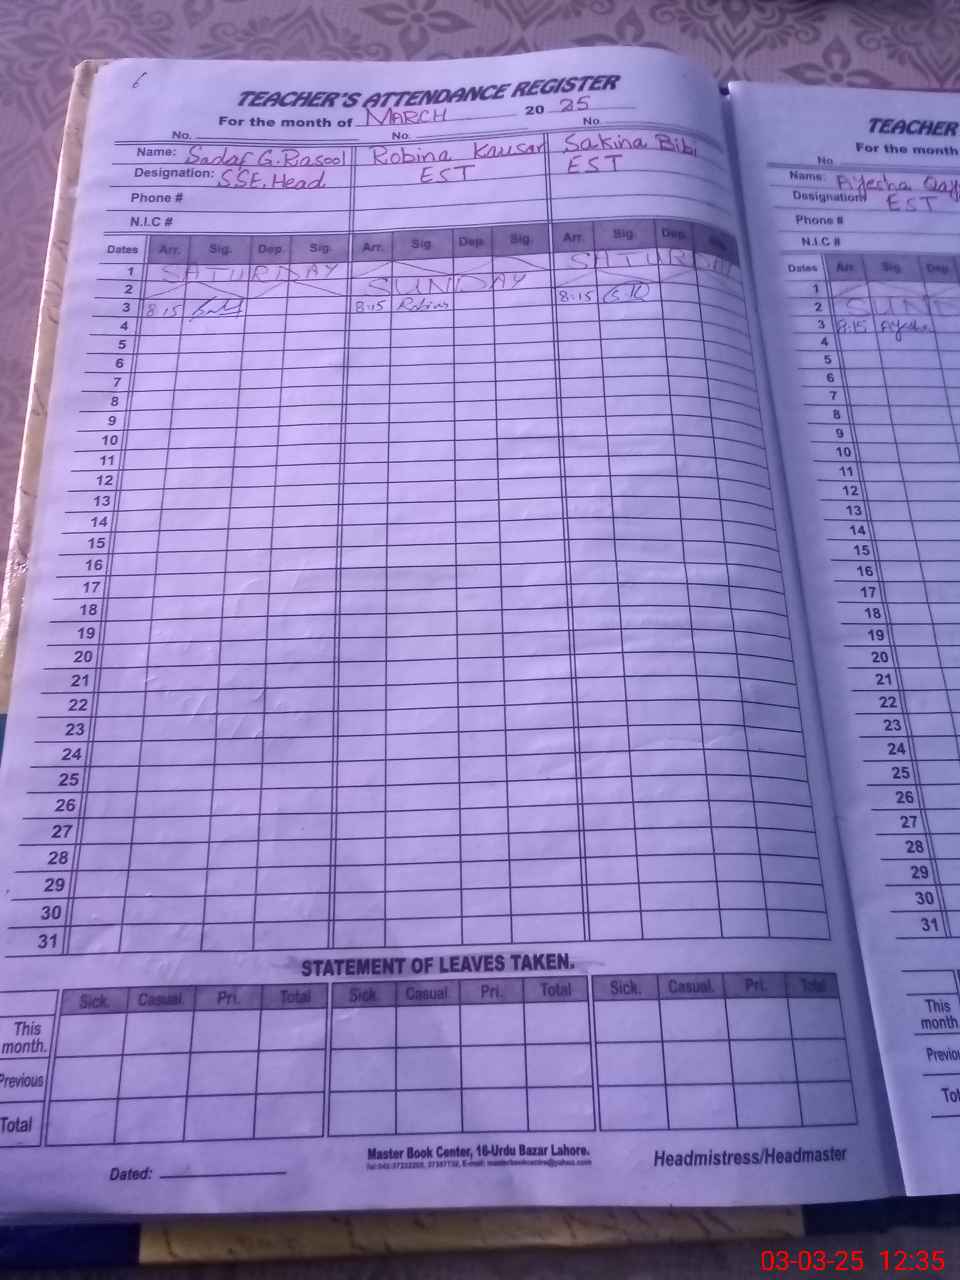 6
TEACHER'S ATTENDANCE REGISTER
For the month of MARCH 20 25
No. No. No.
Name: Sadaf G. Rasool Robina Kausar Sakina Bibi
Designation: SSE. Head EST EST
Phone #
N.I.C #
Dates Arr. Sig. Dep. Sig. Arr. Sig. Dep. Sig. Arr. Sig. Dep.
1 SATURDAY SATURDAY
2 SUNDAY
3 8:15 8:15 Robina 8:15
4
5
6
7
8
9
10
11
12
13
14
15
16
17
18
19
20
21
22
23
24
25
26
27
28
29
30
31
STATEMENT OF LEAVES TAKEN.
Sick. Casual. Pri. Total Sick. Casual Pri. Total Sick. Casual. Pri. Total
This month.
Previous
Total
Dated:
Master Book Center, 16-Urdu Bazar Lahore.
Headmistress/Headmaster
TEACHER
For the month
No
Name: Ayesha
Designation EST
Phone #
N.I.C #
Dates Arr. Sig. Dep.
1
2 SUND
3 8:15
4
5
6
7
8
9
10
11
12
13
14
15
16
17
18
19
20
21
22
23
24
25
26
27
28
29
30
31
This
month
03-03-25 12:35